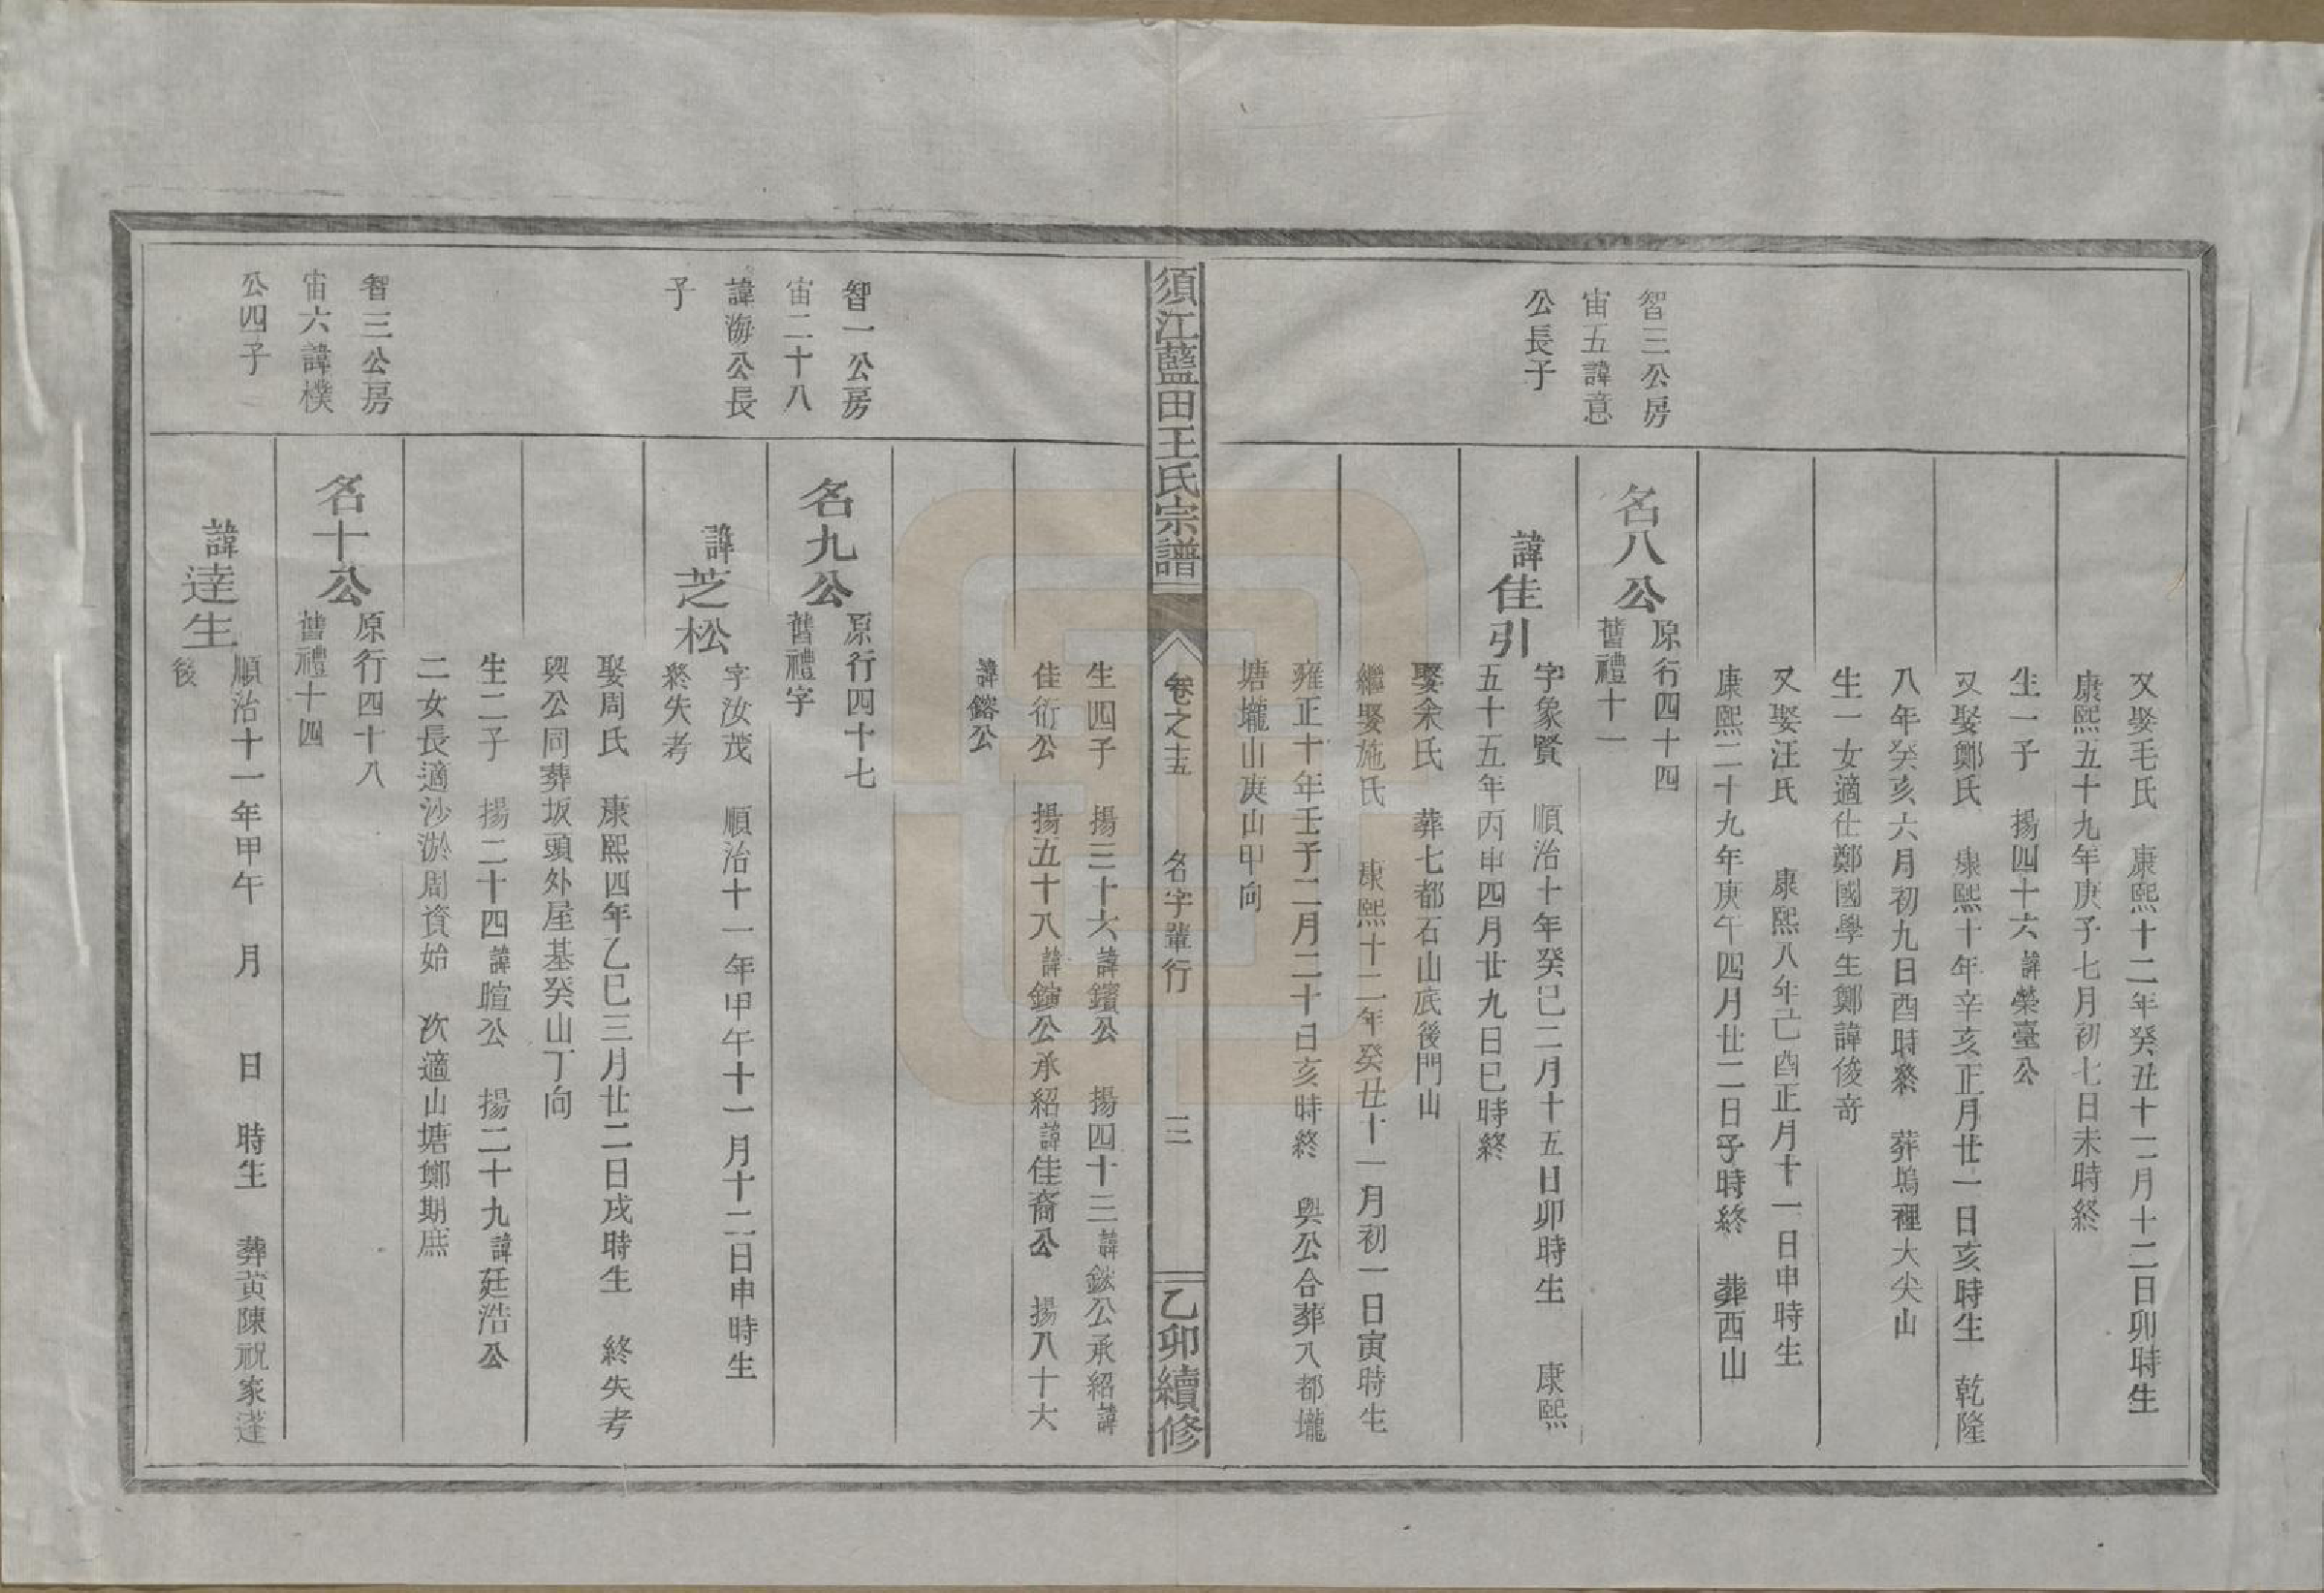 又娶毛氏 康熙十二年癸丑十二月十二日卯時生
康熙五十九年庚子七月初七日未時終
生一子 揚四十六諱榮臺公
又娶鄭氏 康熙十年辛亥正月廿一日亥時生 乾隆
八年癸亥六月初九日酉時終 葬塢裡大尖山
生一女適仕鄭國學生鄭諱俊奇
又娶汪氏 康熙八年己酉正月十一日申時生
康熙二十九年庚午四月廿二日子時終 葬西山
智三公房
宙五諱意
公長子
名八公
原行四十四
舊禮十一
諱佳引
字象賢 順治十年癸巳二月十五日卯時生 康熙
五十五年丙申四月廿九日巳時終
娶余氏 葬七都石山底後門山
繼娶施氏 康熙十二年癸丑十一月初一日寅時生
雍正十年壬子二月二十日亥時終 與公合葬八都壠
塘壠山庚山甲向
須江藍田王氏宗譜
卷之十五 名字輩行 三
乙卯續修
生四子 揚三十六諱鑌公 揚四十三諱鈥公承紹諱
佳衍公 揚五十八諱鎮公承紹諱佳裔公 揚八十六
諱鎔公
智一公房
宙二十八
諱海公長
子
名九公
原行四十七
舊禮字
諱芝松
字汝茂 順治十一年甲午十一月十二日申時生
終失考
娶周氏 康熙四年乙巳三月廿二日戌時生 終失考
與公同葬坂頭外屋基癸山丁向
生二子 揚二十四諱暄公 揚二十九諱廷浩公
二女長適沙淤周資始 次適山塘鄭期庶
智三公房
宙六諱樸
公四子
名十公
原行四十八
舊禮十四
諱逹生
順治十一年甲午 月 日 時生 葬黃陳祝家蓬
後